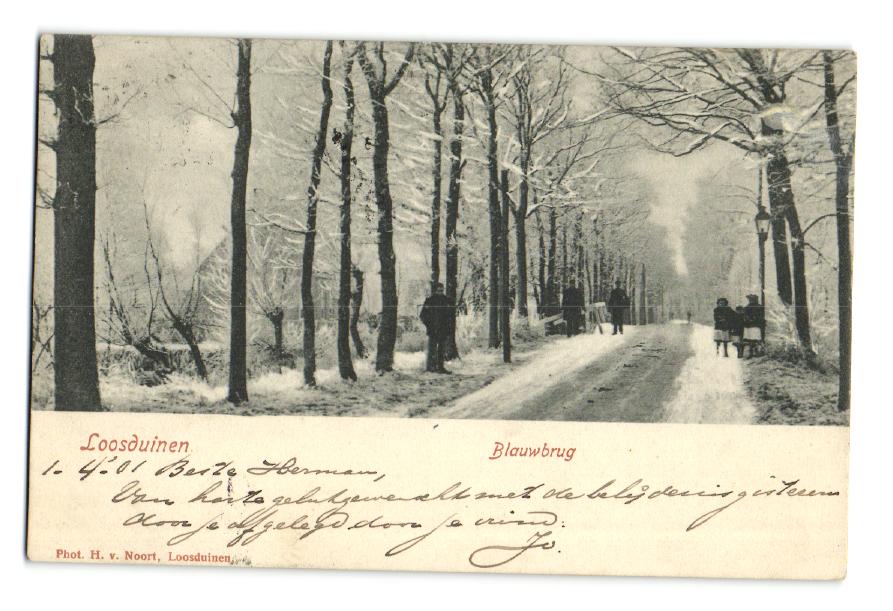 Loosduinen
Blauwbrug
1. 4. 01 Beste Herman,
Van harte gelukgewenscht met de belijdenis gisteren
door je afgelegd door je vriend.
Jo.
Phot. H. v. Noort, Loosduinen